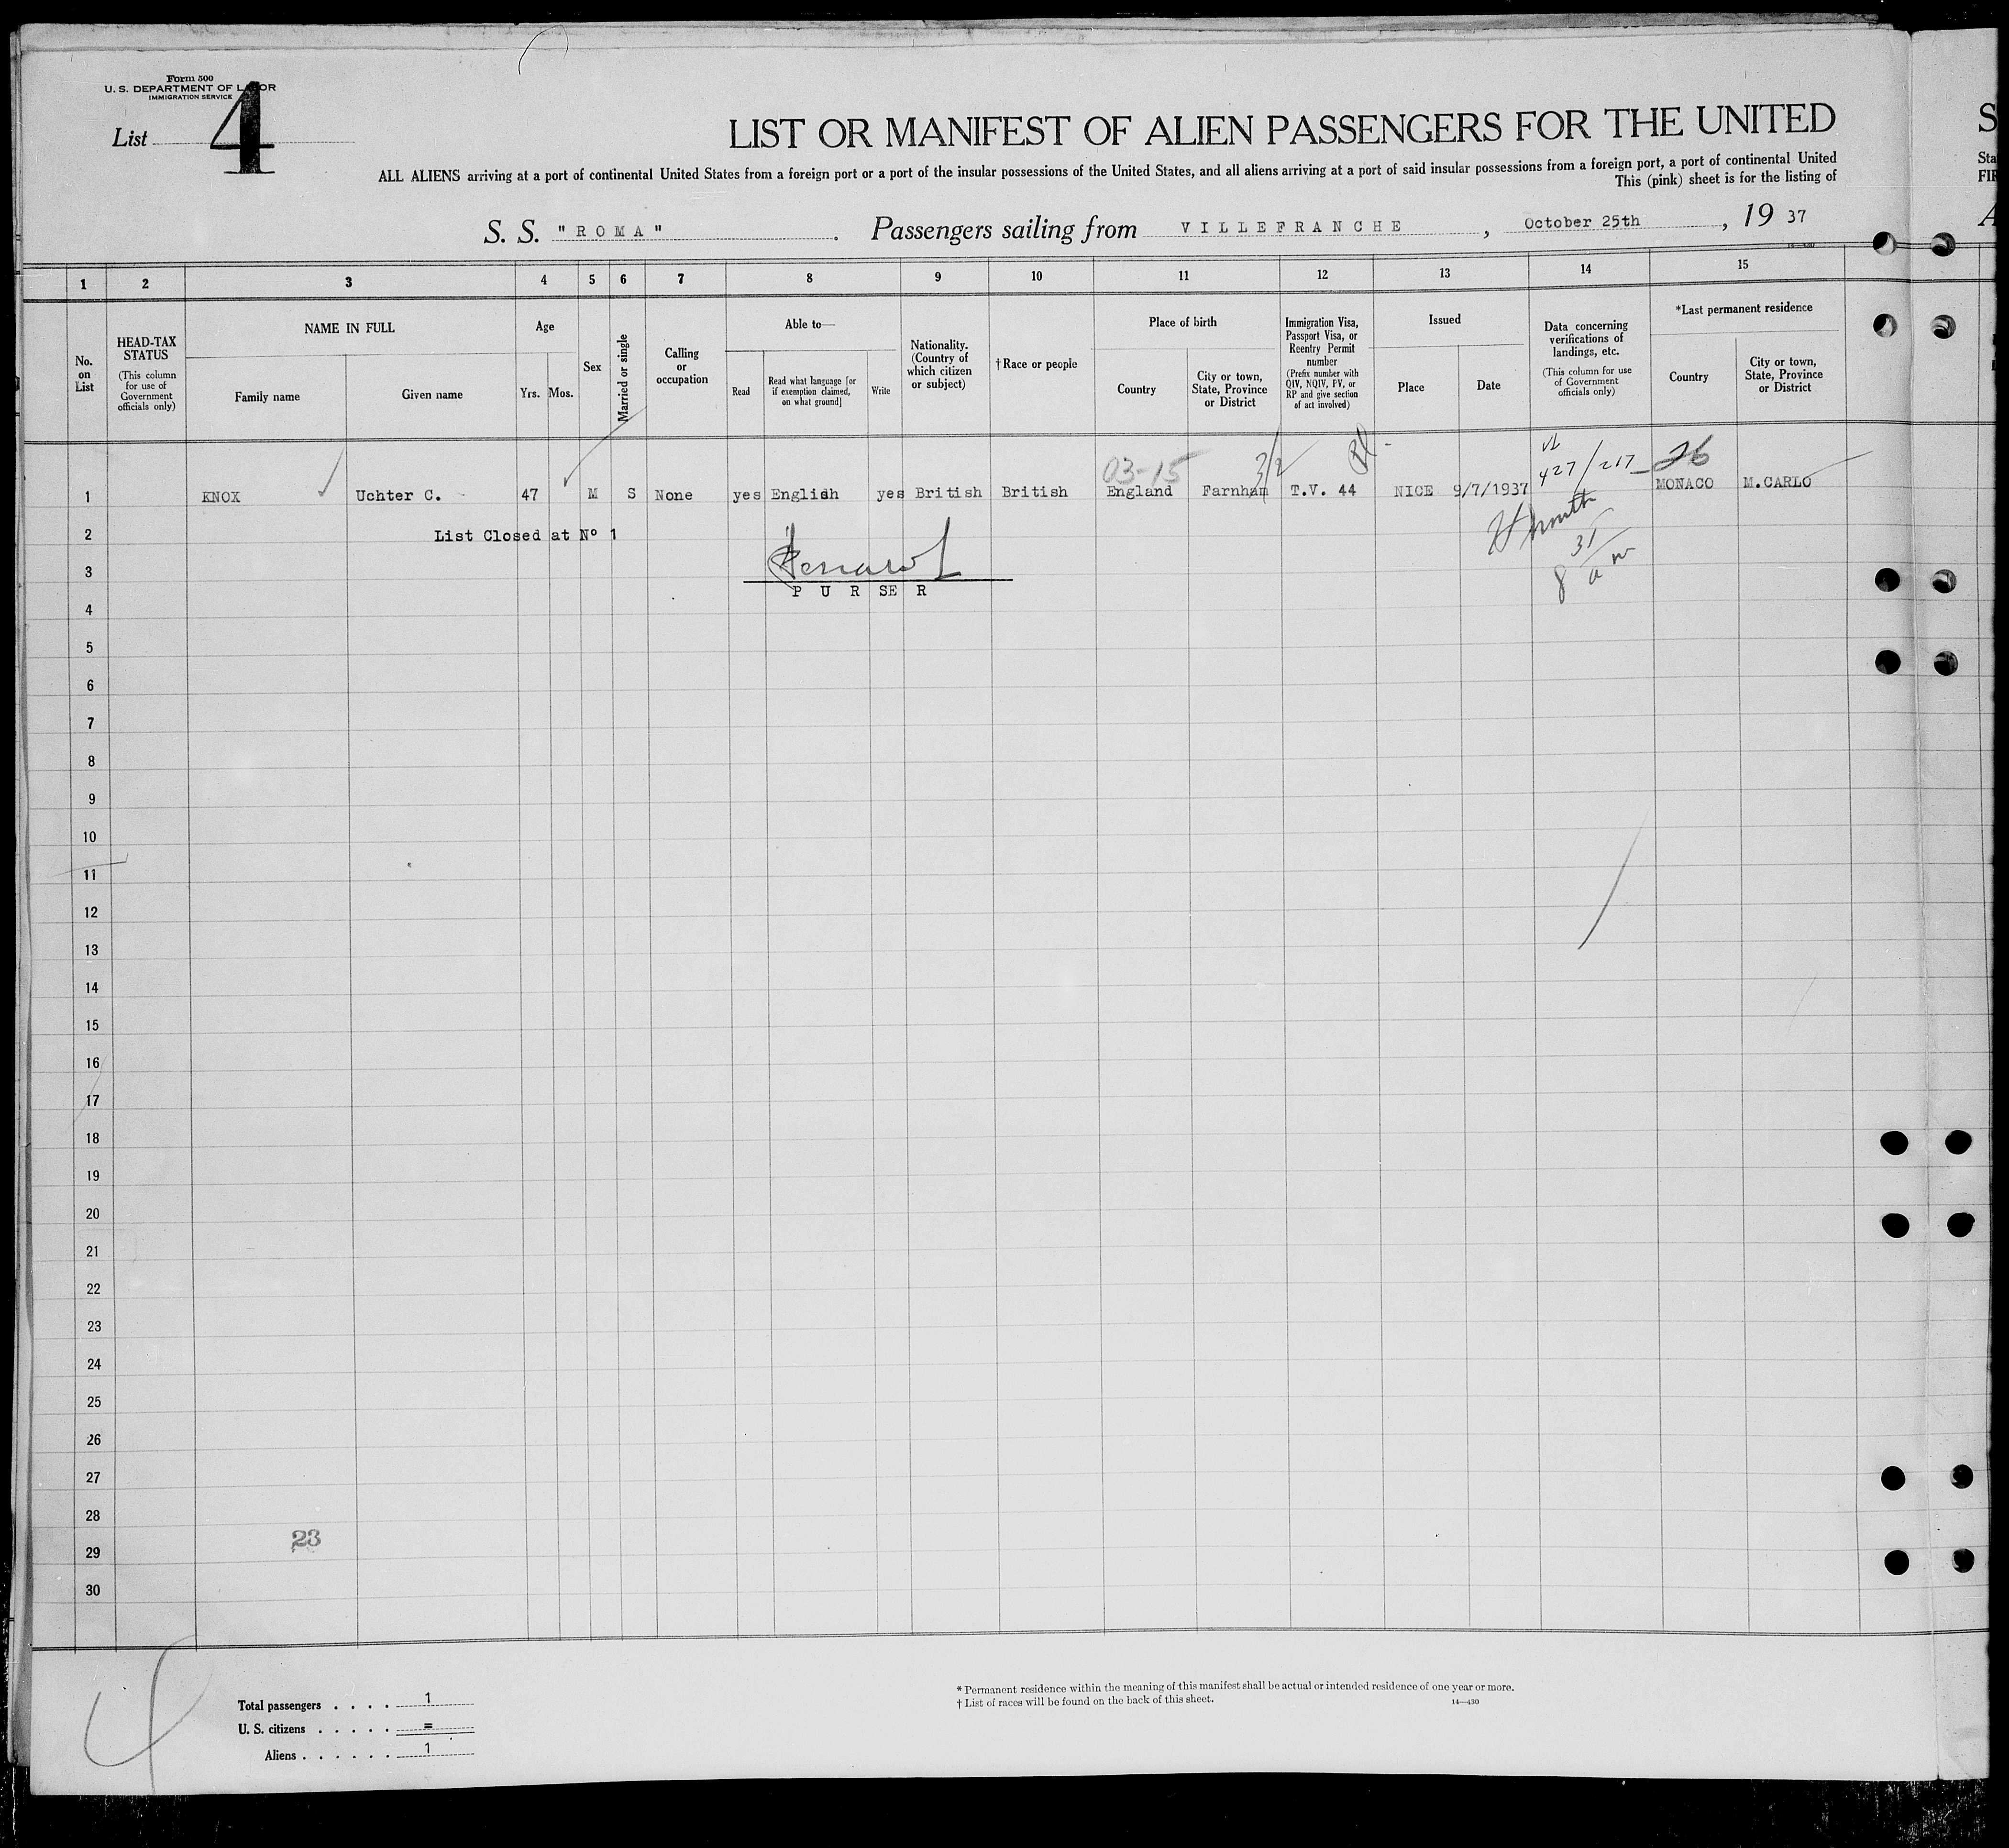 Form 500
U. S. DEPARTMENT OF LABOR
IMMIGRATION SERVICE
List 4
LIST OR MANIFEST OF ALIEN PASSENGERS FOR THE UNITED
S
ALL ALIENS arriving at a port of continental United States from a foreign port or a port of the insular possessions of the United States, and all aliens arriving at a port of said insular possessions from a foreign port, a port of continental United
Sta
This (pink) sheet is for the listing of
FIR
S. S. "ROMA". Passengers sailing from VILLEFRANCHE, October 25th, 19 37
A
1 2 3 4 5 6 7 8 9 10 11 12 13 14 15
No. on List
HEAD-TAX STATUS
(This column for use of Government officials only)
NAME IN FULL
Family name
Given name
Age
Yrs. Mos.
Sex
Married or single
Calling or occupation
Able to—
Read
Read what language [or if exemption claimed, on what ground]
Write
Nationality. (Country of which citizen or subject)
†Race or people
Place of birth
Country
City or town, State, Province or District
Immigration Visa, Passport Visa, or Reentry Permit number
(Prefix number with QIV, NQIV, PV, or RP and give section of act involved)
Issued
Place
Date
Data concerning verifications of landings, etc.
(This column for use of Government officials only)
*Last permanent residence
Country
City or town, State, Province or District
03-15 3/2 427/217 26
1 KNOX Uchter C. 47 M S None yes English yes British British England Farnham T.V. 44 NICE 9/7/1937 MONACO M.CARLO
2 List Closed at Nº 1
month
31
8 am
3
PURSER
4
5
6
7
8
9
10
11
12
13
14
15
16
17
18
19
20
21
22
23
24
25
26
27
28
23
29
30
4
Total passengers . . . . 1
U. S. citizens . . . . . =
Aliens . . . . . . 1
* Permanent residence within the meaning of this manifest shall be actual or intended residence of one year or more.
† List of races will be found on the back of this sheet.
14—430